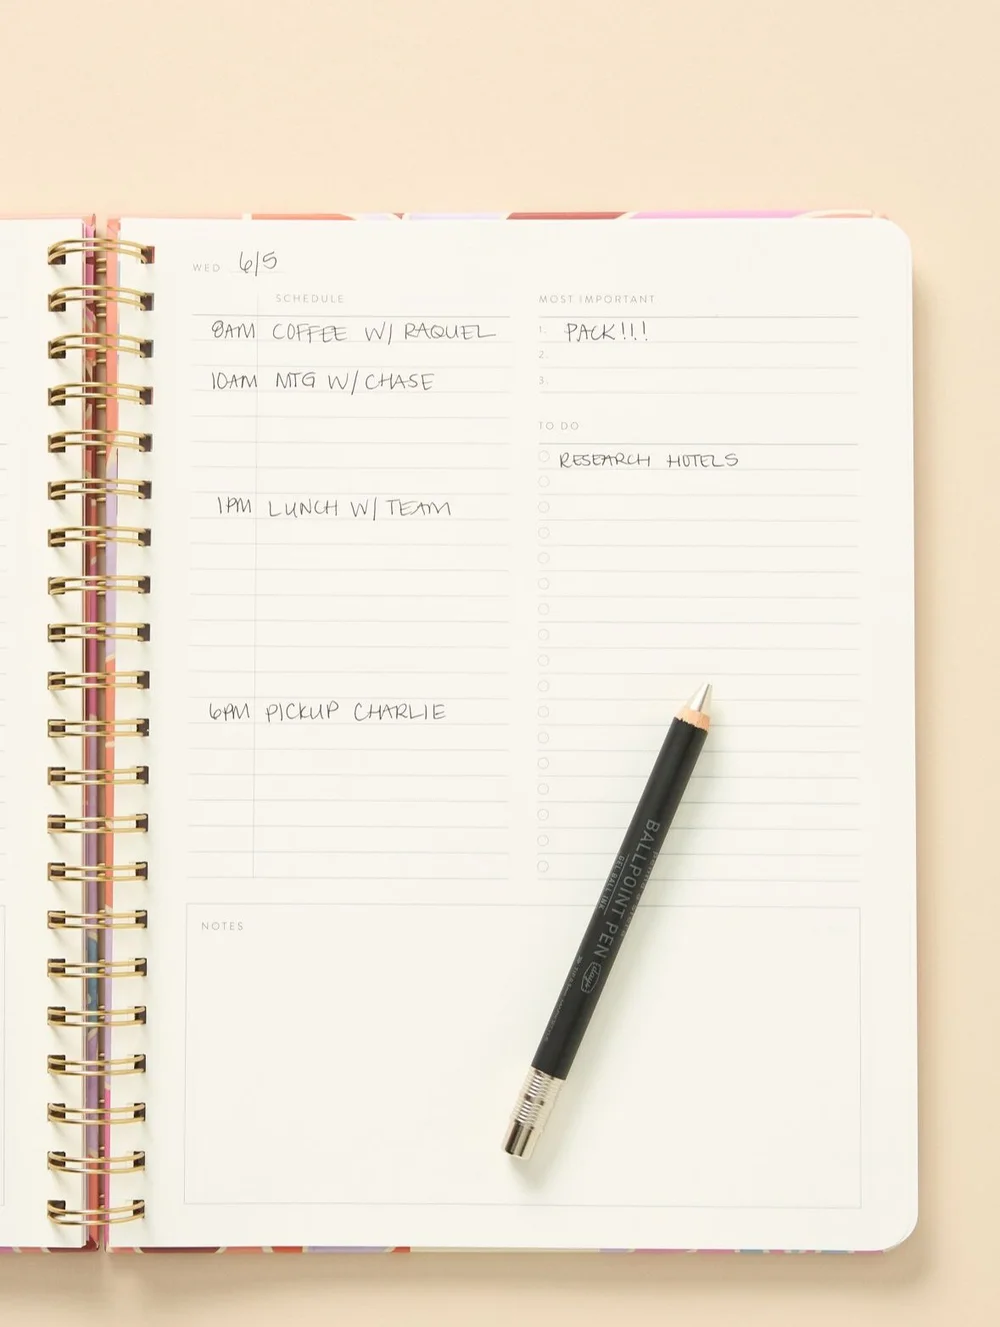 WED 6/5
SCHEDULE
8AM COFFEE W/ RAQUEL
10AM MTG W/ CHASE
1PM LUNCH W/ TEAM
6PM PICKUP CHARLIE
MOST IMPORTANT
1. PACK!!!
2.
3.
TO DO
RESEARCH HOTELS
NOTES
BALLPOINT PEN
GEL BALL INK